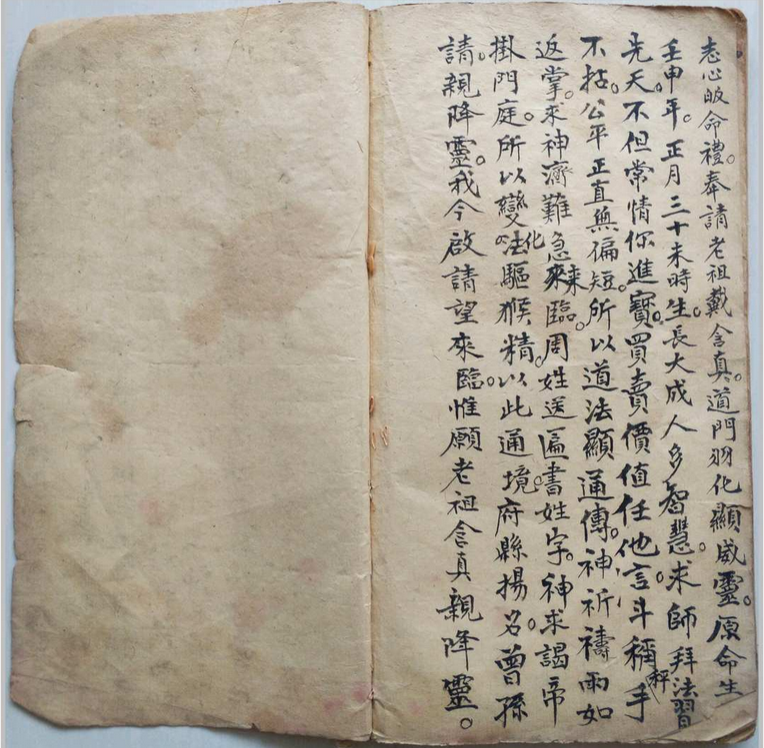 志心皈命禮。奉請老祖戴含真。道門羽化顯威靈。原命生
壬申年。正月三十未時生。長大成人多智慧。求師拜法習
先天。不但常情你進寶。買賣價值任他言。斗稱秤手
不拈。公平正直無偏短。所以道法顯通傳。神祈禱雨如
返掌。求神濟難急來來臨。周姓送匾書姓字。神求謁帝
掛門庭。所以變化法。驅猴精。以此通境。府縣揚名。曾孫
請。親降靈。我今啟請望來臨。惟願老祖含真親降靈。